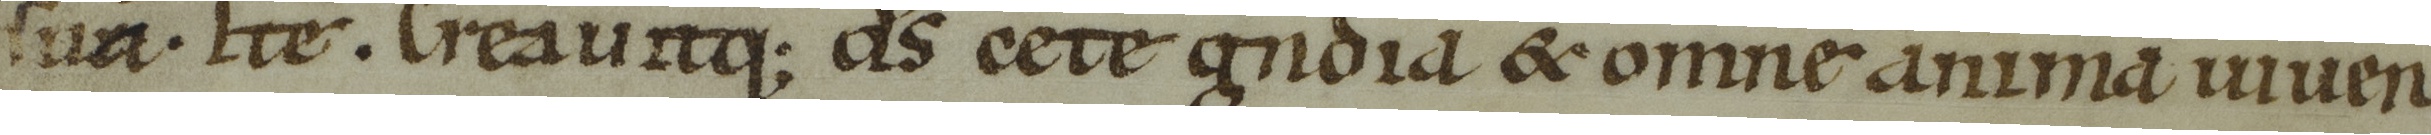 sua. Ite. Creauitq; ds cete gndia & omne anima uiuen